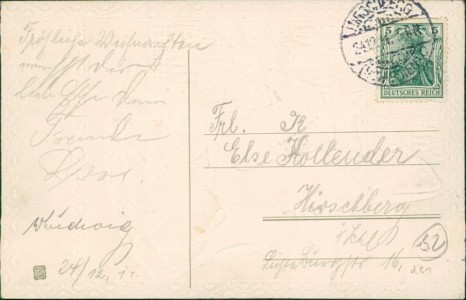 Fröhliche Weihnachten
wünscht Dir
liebe Else Dein
Freund
Ludwig
24/12.11.
HIRSCHBERG
5 5
DEUTSCHES REICH
Frl.
Else Hollender
Hirschberg
16,
52